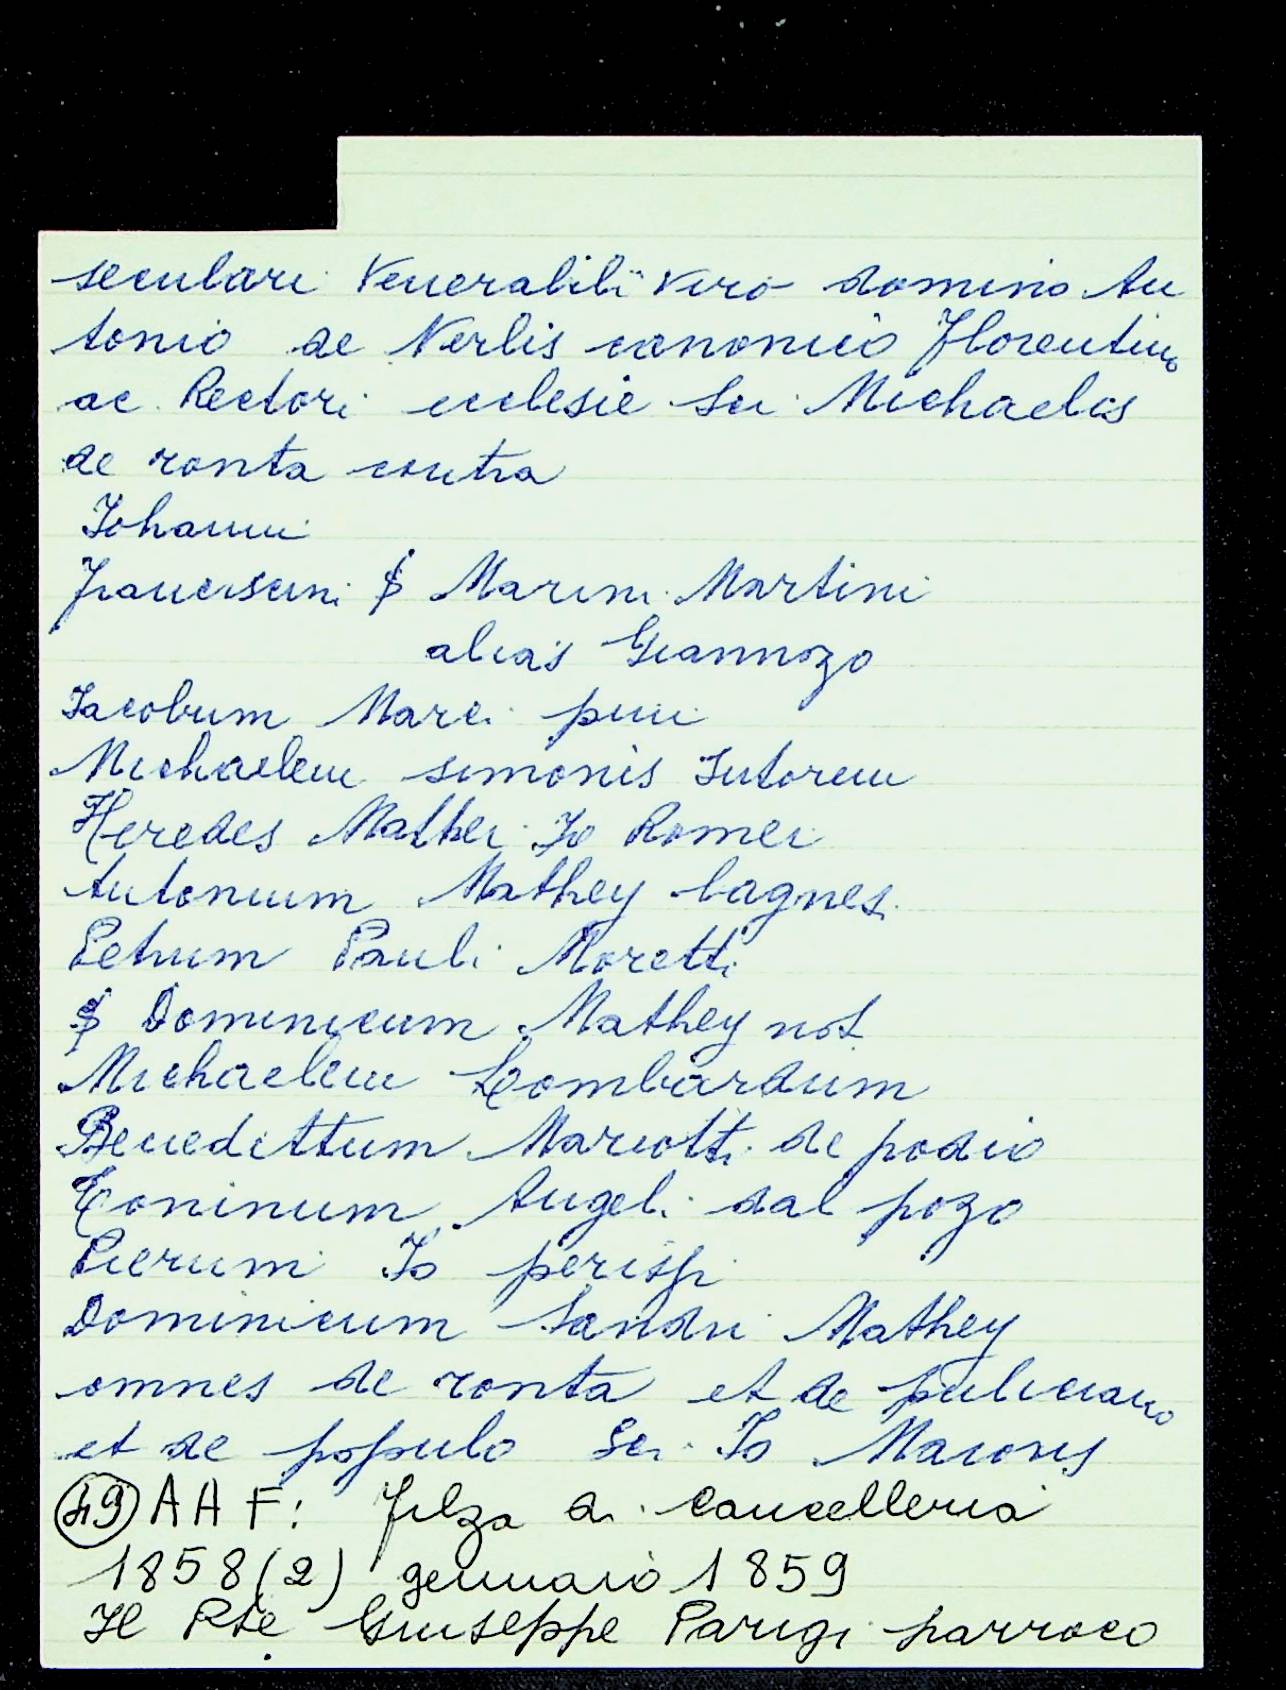 seculari Venerabili viro domino An
tonio de Nerlis canonico Florentino
ac Rectori ecclesie Sci Michaelis
de ronta contra
Iohanni
Franciscum $ Marini Martini
alias Giannozo
Iacobum Marci pini
Michaelem simonis sutorem
Heredes Mathei Io Romei
Antonium Mathey bagnesi
Petrum Pauli Moretti
$ Dominicum Mathey not
Michaelem Lombardum
Benedittum Mariotti de podio
Toninum Angeli dal pozo
Pierum Io
Dominicum Sandri Mathey
omnes de ronta et de puliciano
et de populo Sci Io Maioris
49 AAF: Filza di Cancelleria
1858(2) gennaio 1859
Il Rte Giuseppe Parigi parroco